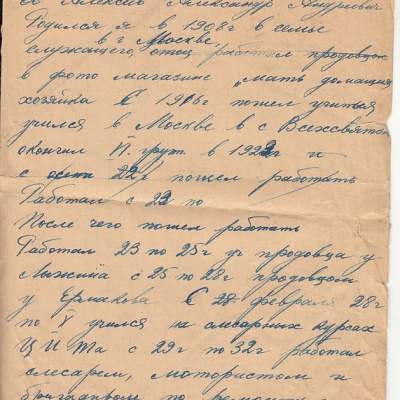 Я Алексеев Александр Андреевич
Родился я в 1908г в семье
в г Москве,
служащего, отец работал продовцом
в фото магазине, мать домашняя
хозяйка С 1916 пошел учиться
учился в Москве в с Всехсвятс
окончил II груп. в 1923г и
с осени 22г пошел работать
Работал с 23 по
После чего пошел работать
Работал 23 по 25г уч продовца у
с 25 по 28г продовцом
у Ермакова С 28 февраля 28г
по X учился на слесарных курсах
ЦИТа с 29г по 32г работал
слесарем, мотористом и
бригадиром по ремонту